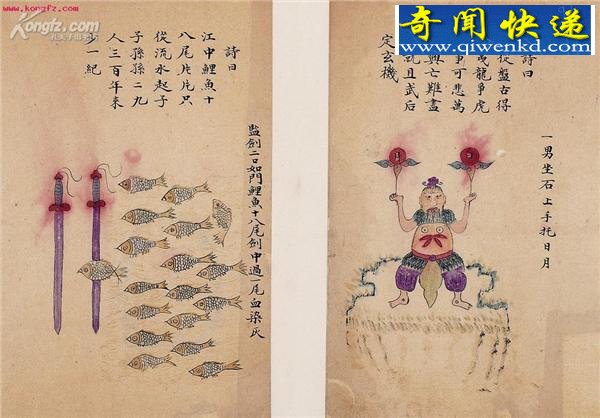 www.kongfz.com
Kongfz.com
奇闻快递
www.qiwenkd.com
一男坐石上手托日月
詩曰
從盤古得
龍爭虎
事可悲萬
興亡難盡
且武后
定玄機
監劍二口如門鯉魚十八尾劍中過一尾血染灰
詩曰
江中鯉魚十
八尾片片只
從流水起子
子孫孫二九
人三百年來
少一紀